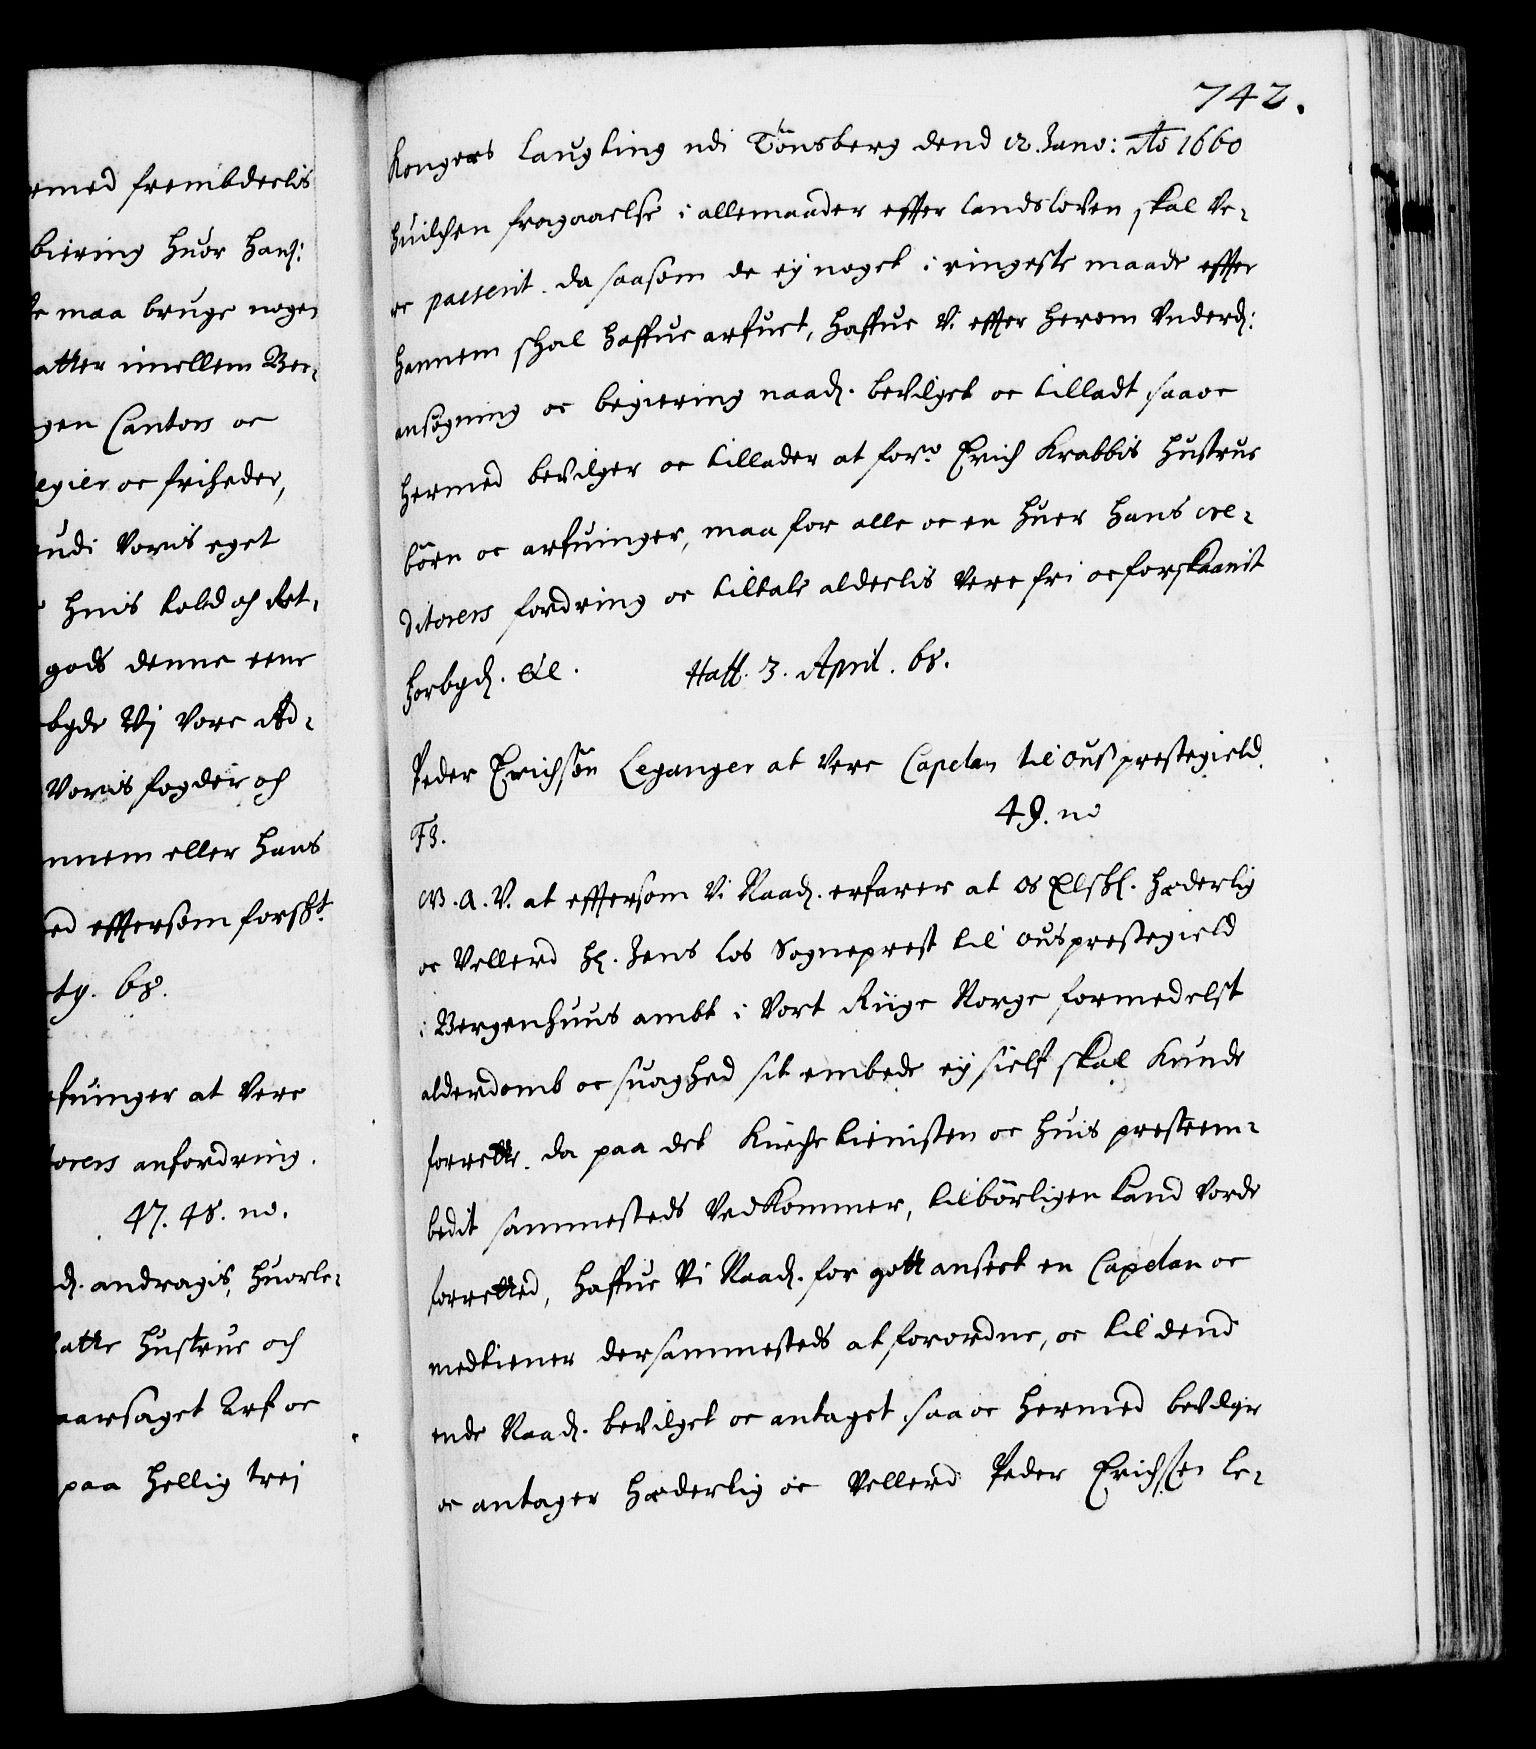 rmed frembdeelis
biering huor hans:
te maa bruge nogen
atter imellem Ber-
gen Cantors oc
egier oc friheder,
udi Voris eget
huis told och Ret-
gods denne eene
bgde Wj Vore Ad-
Voris fogder och
nnem eller hans
ed effersom forskt.
ty. 68.
fuinger at Vere
torers anfordring.
47. 48. no.
d. andragis, huorle-
atte hustrue och
aarsaget Arf oc
paa hellig trej
742.
Kongers Laugting udi Tönsberg dend 12. Janv: Ao 1660
huilchen fragaaelse i allemaader effter landsloven skal Ve-
re passerit. da saasom de ej noget i ringeste maade effter
hannem skal haffue arfuet, haffue Vi effter herom Underd:
ansögning oc begiering naad. bevilget oc tilladt saa oc
hermed bevilger oc tillader at forne Erich Krabbis hustrue
börn oc arfuinger, maa for alle oc en huer hans cre-
ditorers fordring oc tiltale aldeelis Vere fri oc forskaanit
Forbyd. &c. Haff. 3. April. 68.
Peder Erichsön Leganger at Vere Capelan til Ous prestegield.
49. no
F3.
W. A. V. at effersom Vi Naad. erfarer at os Elskl. Hæderlig
oc Vellerd Hr. Jens Los Sogneprest til Ous prestegield
i Bergenhuus ambt i Vort Riige Norge formedelst
alderdomb oc suaghed sit embede ej sielf skal kunde
forrette. da paa det Kirche tienisten oc huis presteem-
bedit sammesteds VedKommer, tilbörligen kand Vorde
forretted, haffue Vi Naad. for gott anseet en Capelan oc
medtiener dersammesteds at forordne, oc til dend
ende Naad. bevilget oc antaget saa oc hermed bevilger
oc antager Hæderlig oc Vellerd Peder Erichsen Le-